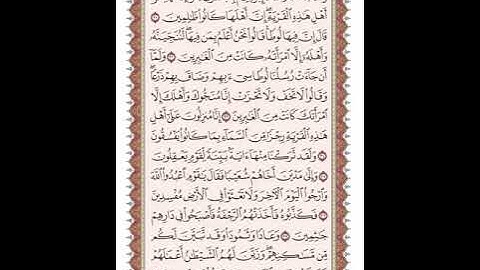 أَهْلِ هَٰذِهِ ٱلْقَرْيَةِ إِنَّ أَهْلَهَا كَانُوا۟ ظَٰلِمِينَ
قَالَ إِنَّ فِيهَا لُوطًا قَالُوا۟ نَحْنُ أَعْلَمُ بِمَن فِيهَا لَنُنَجِّيَنَّهُۥ
وَأَهْلَهُۥٓ إِلَّا ٱمْرَأَتَهُۥ كَانَتْ مِنَ ٱلْغَٰبِرِينَ وَلَمَّآ
أَن جَآءَتْ رُسُلُنَا لُوطًا سِىٓءَ بِهِمْ وَضَاقَ بِهِمْ ذَرْعًا
وَقَالُوا۟ لَا تَخَفْ وَلَا تَحْزَنْ إِنَّا مُنَجُّوكَ وَأَهْلَكَ إِلَّا
ٱمْرَأَتَكَ كَانَتْ مِنَ ٱلْغَٰبِرِينَ إِنَّا مُنزِلُونَ عَلَىٰٓ أَهْلِ
هَٰذِهِ ٱلْقَرْيَةِ رِجْزًا مِّنَ ٱلسَّمَآءِ بِمَا كَانُوا۟ يَفْسُقُونَ
وَلَقَد تَّرَكْنَا مِنْهَآ ءَايَةًۢ بَيِّنَةً لِّقَوْمٍ يَعْقِلُونَ
وَإِلَىٰ مَدْيَنَ أَخَاهُمْ شُعَيْبًا فَقَالَ يَٰقَوْمِ ٱعْبُدُوا۟ ٱللَّهَ
وَٱرْجُوا۟ ٱلْيَوْمَ ٱلْءَاخِرَ وَلَا تَعْثَوْا۟ فِى ٱلْأَرْضِ مُفْسِدِينَ
فَكَذَّبُوهُ فَأَخَذَتْهُمُ ٱلرَّجْفَةُ فَأَصْبَحُوا۟ فِى دَارِهِمْ
جَٰثِمِينَ وَعَادًا وَثَمُودَا۟ وَقَد تَّبَيَّنَ لَكُم
مِّن مَّسَٰكِنِهِمْ وَزَيَّنَ لَهُمُ ٱلشَّيْطَٰنُ أَعْمَٰلَهُمْ